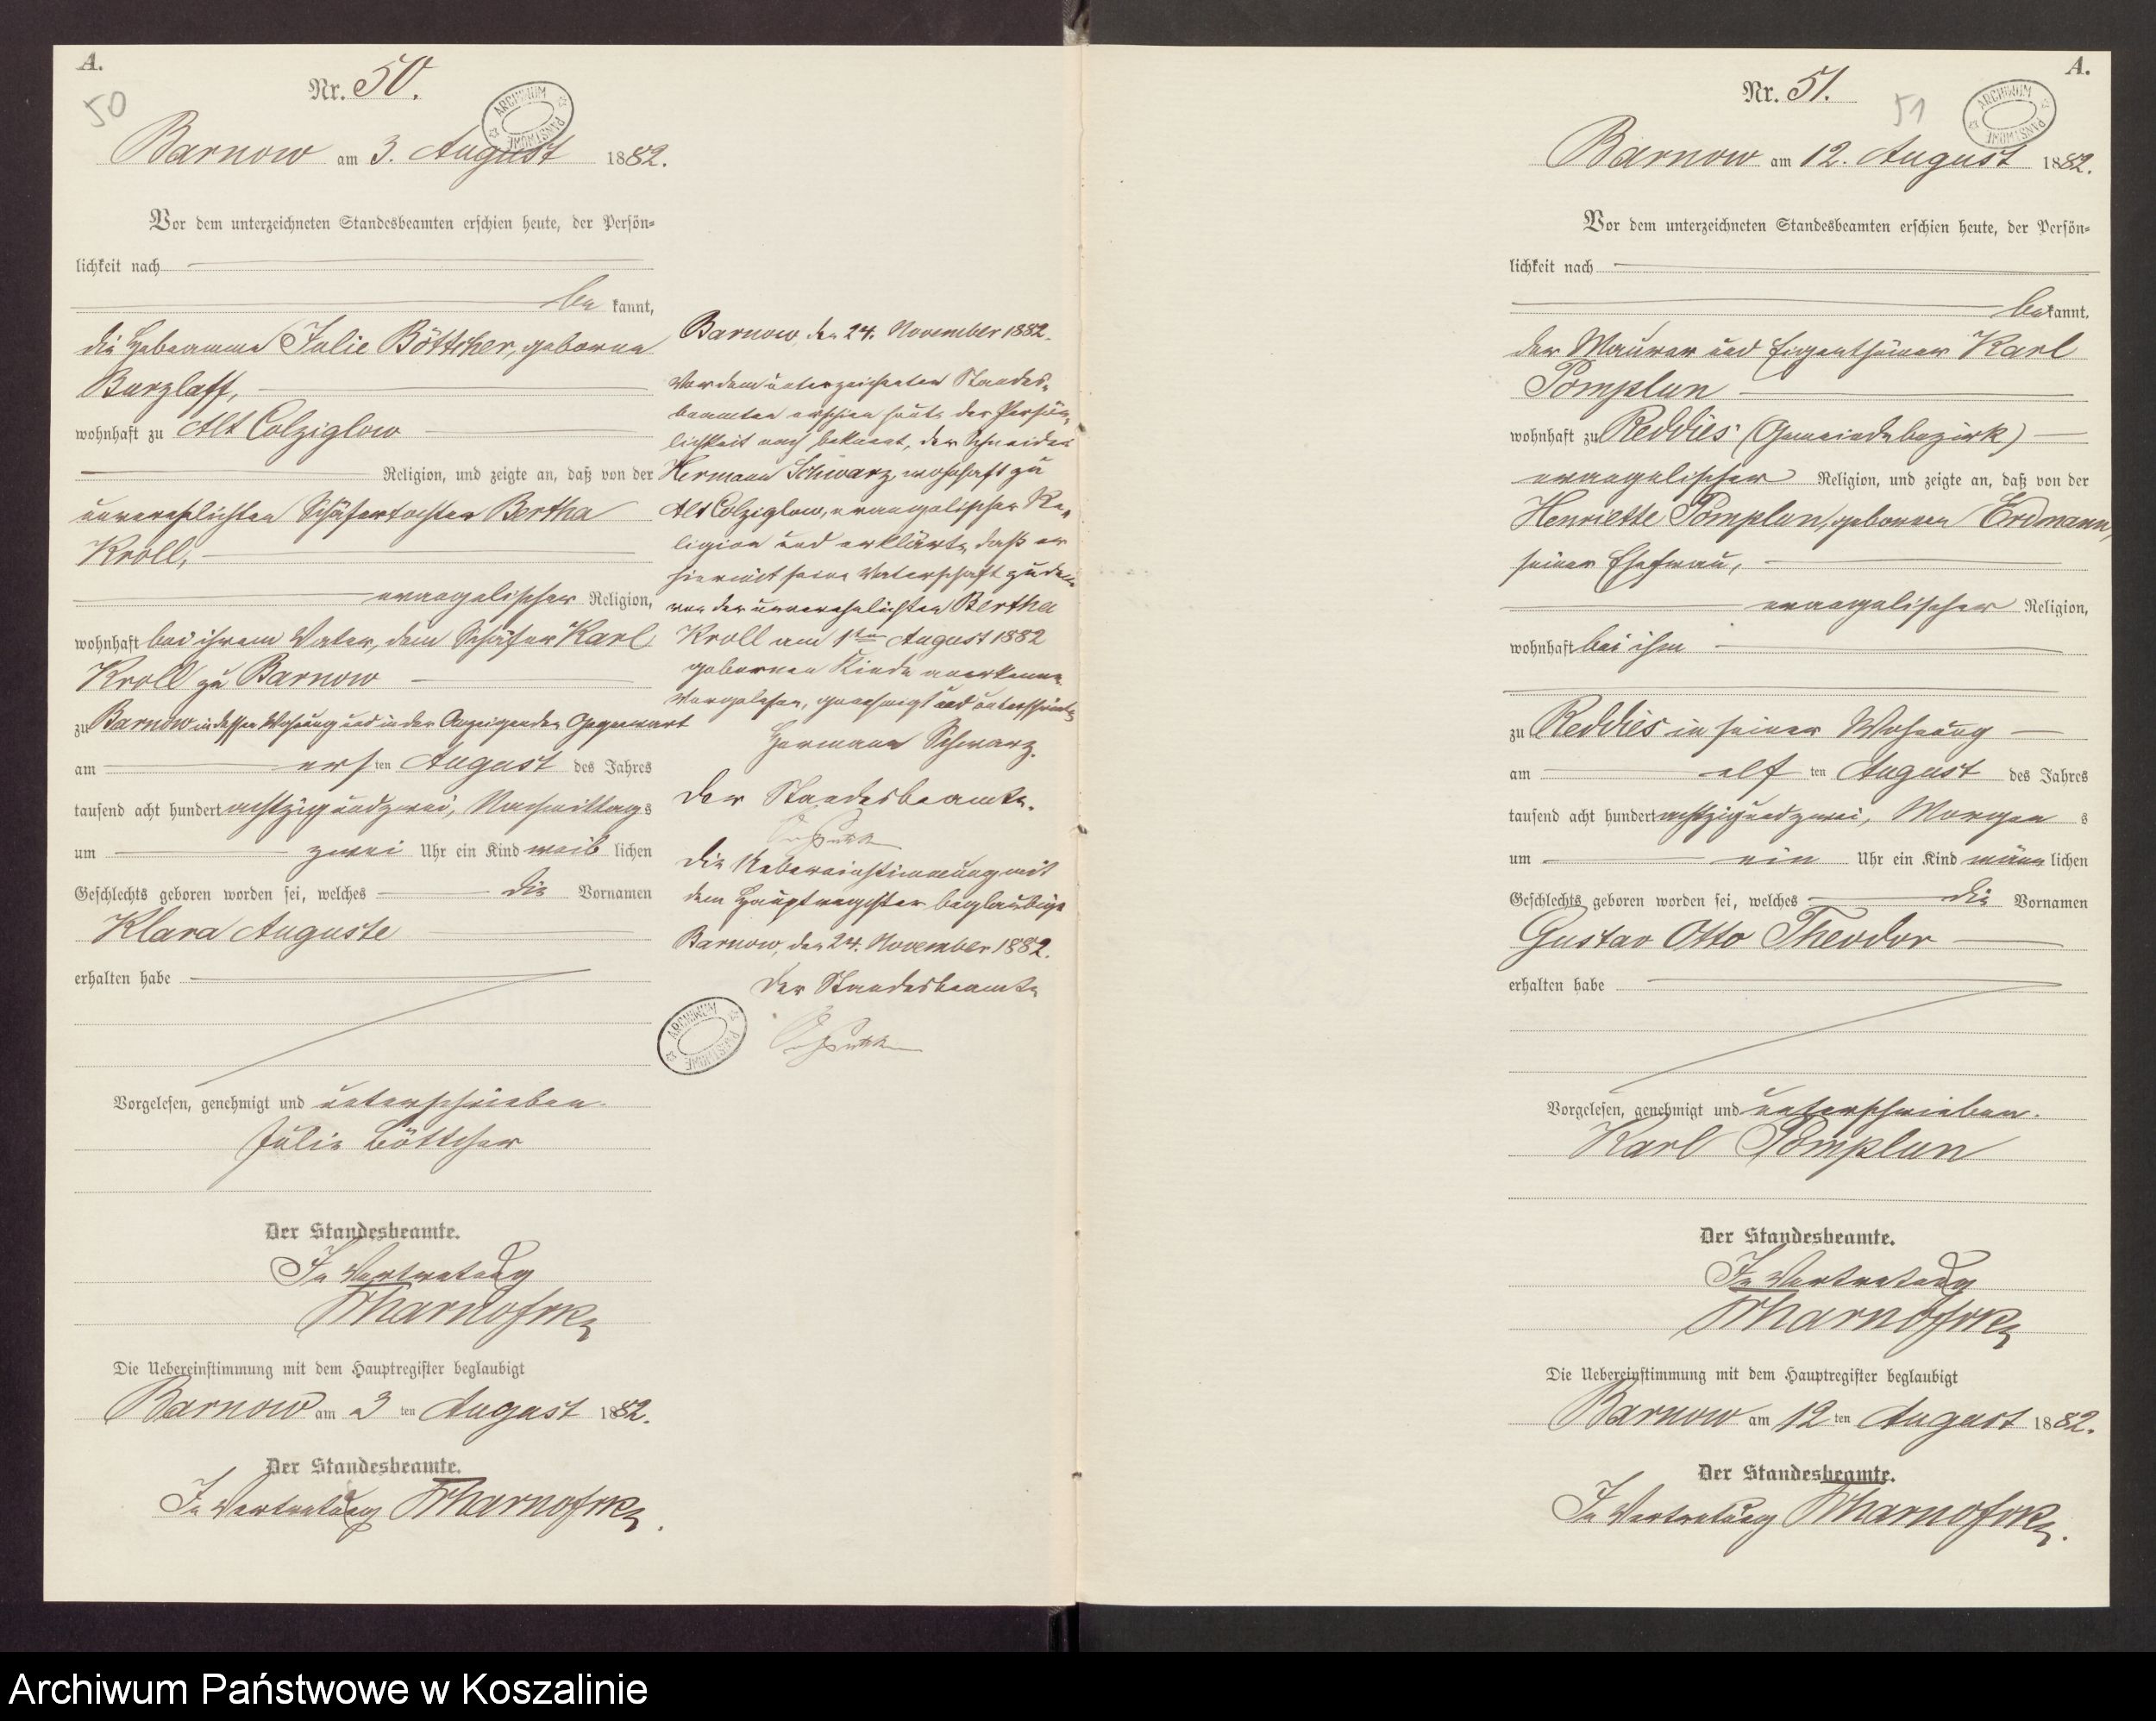 A.
Nr. 50.
50
ARCHIWUM PAŃSTWOWE
Barnow am 3. August 1882.
Vor dem unterzeichneten Standesbeamten erschien heute, der Persön-
lichkeit nach
be kannt,
die Hebeamme Julie Böttcher, geborne
Burzlaff,
wohnhaft zu Alt Colziglow
Religion, und zeigte an, daß von der
unverehlichten Schäfertochter Bertha
Kroll,
evangelischer Religion,
wohnhaft bei ihrem Vater, dem Schäfer Karl
Kroll zu Barnow
zu Barnow in dessen Wohnung und in der Anzeigenden Gegenwart
am ersten August des Jahres
tausend acht hundert achtzig und zwei, Nachmittags
um zwei Uhr ein Kind weiblichen
Geschlechts geboren worden sei, welches die Vornamen
Klara Auguste
erhalten habe
Vorgelesen, genehmigt und unterschrieben.
Julie Böttcher
Der Standesbeamte.
In Vertretung
Die Uebereinstimmung mit dem Hauptregister beglaubigt
Barnow am 3ten August 1882.
Der Standesbeamte.
In Vertretung
Barnow, den 24. November 1882.
Vor dem unterzeichneten Standes-
beamten erschien heute der Persön-
lichkeit nach bekannt, der Schneider
Hermann Schwarz, wohnhaft zu
Alt Colziglow, evangelischer Re-
ligion und erklärte, daß er
hiermit seine Vaterschaft zu dem
von der unverehelichten Bertha
Kroll am 1ten August 1882
gebornen Kinde anerkenne
Vorgelesen, genehmigt und unterschrieben
Hermann Schwarz.
Der Standesbeamte.
Die Uebereinstimmung mit
dem Hauptregister beglaubigt
Barnow, den 24. November 1882.
Der Standesbeamte
ARCHIWUM PAŃSTWOWE
A.
Nr. 51.
51
ARCHIWUM PAŃSTWOWE
Barnow am 12. August 1882.
Vor dem unterzeichneten Standesbeamten erschien heute, der Persön-
lichkeit nach
bekannt,
der Maurer und Eigenthümer Karl
Pomplun
wohnhaft zu Reddies (Gemeindebezirk)
evangelischer Religion, und zeigte an, daß von der
Henriette Pomplun, gebornen Erdmann,
seiner Ehefrau,
evangelischer Religion,
wohnhaft bei ihm
zu Reddies in seiner Wohnung
am elften August des Jahres
tausend acht hundert achtzig und zwei, Morgens
um ein Uhr ein Kind männlichen
Geschlechts geboren worden sei, welches die Vornamen
Gustav Otto Theodor
erhalten habe
Vorgelesen, genehmigt und unterschrieben.
Karl Pomplun
Der Standesbeamte.
In Vertretung
Die Uebereinstimmung mit dem Hauptregister beglaubigt
Barnow am 12ten August 1882.
Der Standesbeamte.
In Vertretung
Archiwum Państwowe w Koszalinie